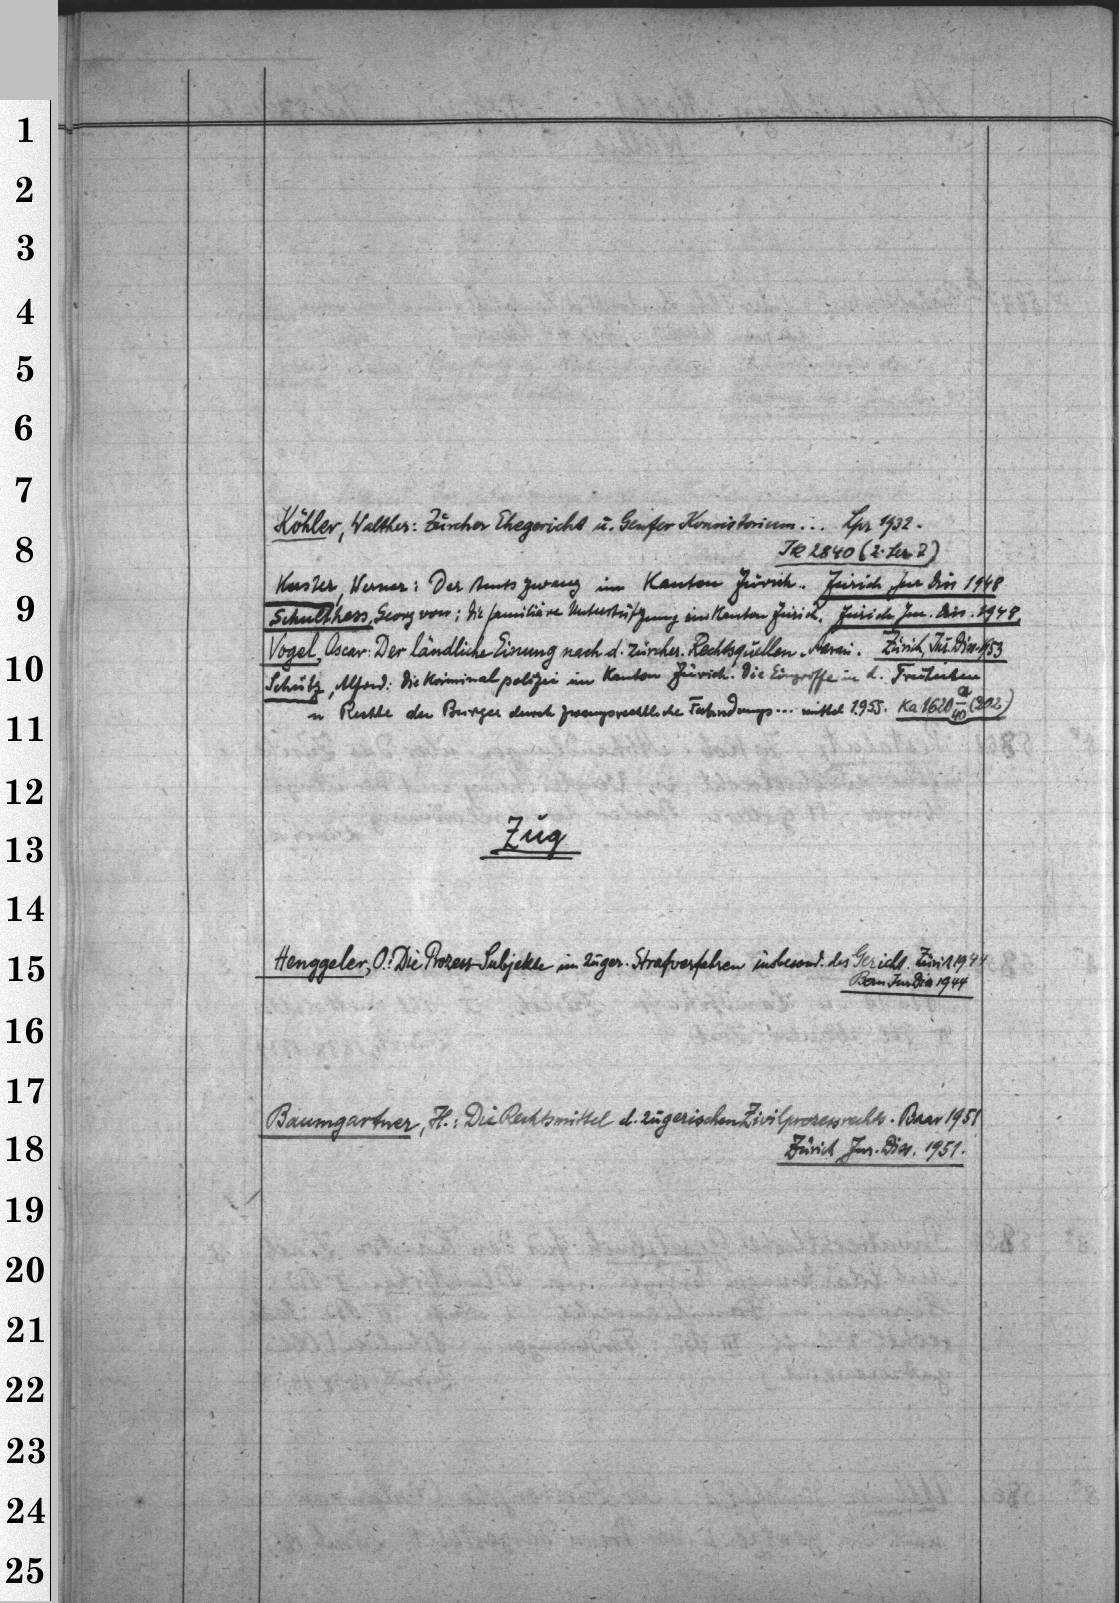 1
2
3
4
5
6
7
Köhler, Walther: Zürcher Ehegericht u. Genfer Konsistorium... Lpz 1932.
8
(2. Ser. 2)
Kuster, Werner: Der Amtszwang im Kanton Zürich. Zürich, Jur Diss 1948
9
Schulthess, Georg von: Die familiäre Unterstützung im Kanton Zürich. Zürich Jur. Diss. 1948.
Vogel, Oscar: Der ländliche Einung nach d. zürcher. Rechtsquellen. Aarau. Zürich, Jur. Diss. 1953
10
Schütz, Alfred: Die Kriminalpolizei im Kanton Zürich. Die Eingriffe in d. Freiheiten
u Rechte der Bürger durch zwangsrechtliche ... mittel 1955. Ka 1620 a/40 (202)
11
12
Zug
13
14
Henggeler, O.: Die Prozess-Subjekte im zuger. Strafverfahren insbesond. des Gericht. Zürich 1944
15
Bern Jur Diss 1944
16
17
Baumgartner, H.: Die Rechtsmittel d. zugerischen Zivilprozessrechts. Baar 1951
18
Zürich Jur. Diss. 1951.
19
20
21
22
23
24
25